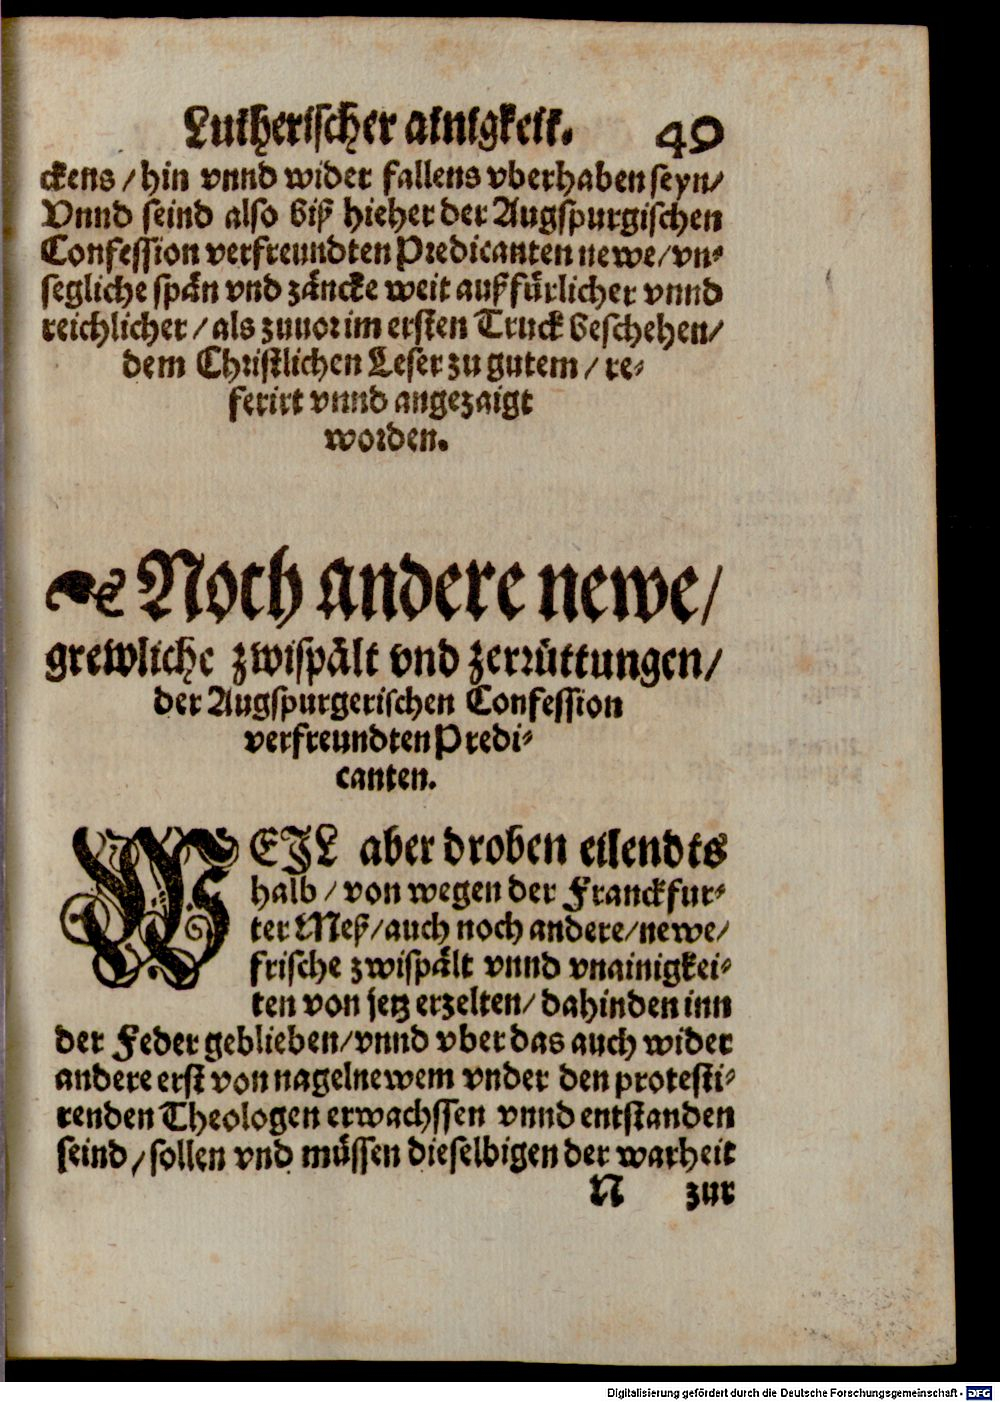 Lutherischer ainigkeit. 49
ckens / hin vnnd wider fallens vberhaben seyn/
Vnnd seind also biß hieher der Augspurgischen
Confession verfreundten Predicanten newe/ vn-
segliche spän vnd zäncke weit außfürlicher vnnd
reichlicher / als zuuor im ersten Truck beschehen/
dem Christlichen Leser zu gutem / re-
ferirt vnnd angezaigt
worden.
Noch andere newe/
grewliche zwispält vnd zerrüttungen/
der Augspurgerischen Confession
verfreundten Predi-
canten.
WEJL aber droben eilendts
halb / von wegen der Franckfur-
ter Meß/auch noch andere/newe/
frische zwispält vnnd vnainigkei-
ten von jetz erzelten/ dahinden inn
der Feder geblieben/vnnd vber das auch wider
andere erst von nagelnewem vnder den protesti-
renden Theologen erwachssen vnnd entstanden
seind/sollen vnd müssen dieselbigen der warheit
N zur
Digitalisierung gefördert durch die Deutsche Forschungsgemeinschaft - DFG